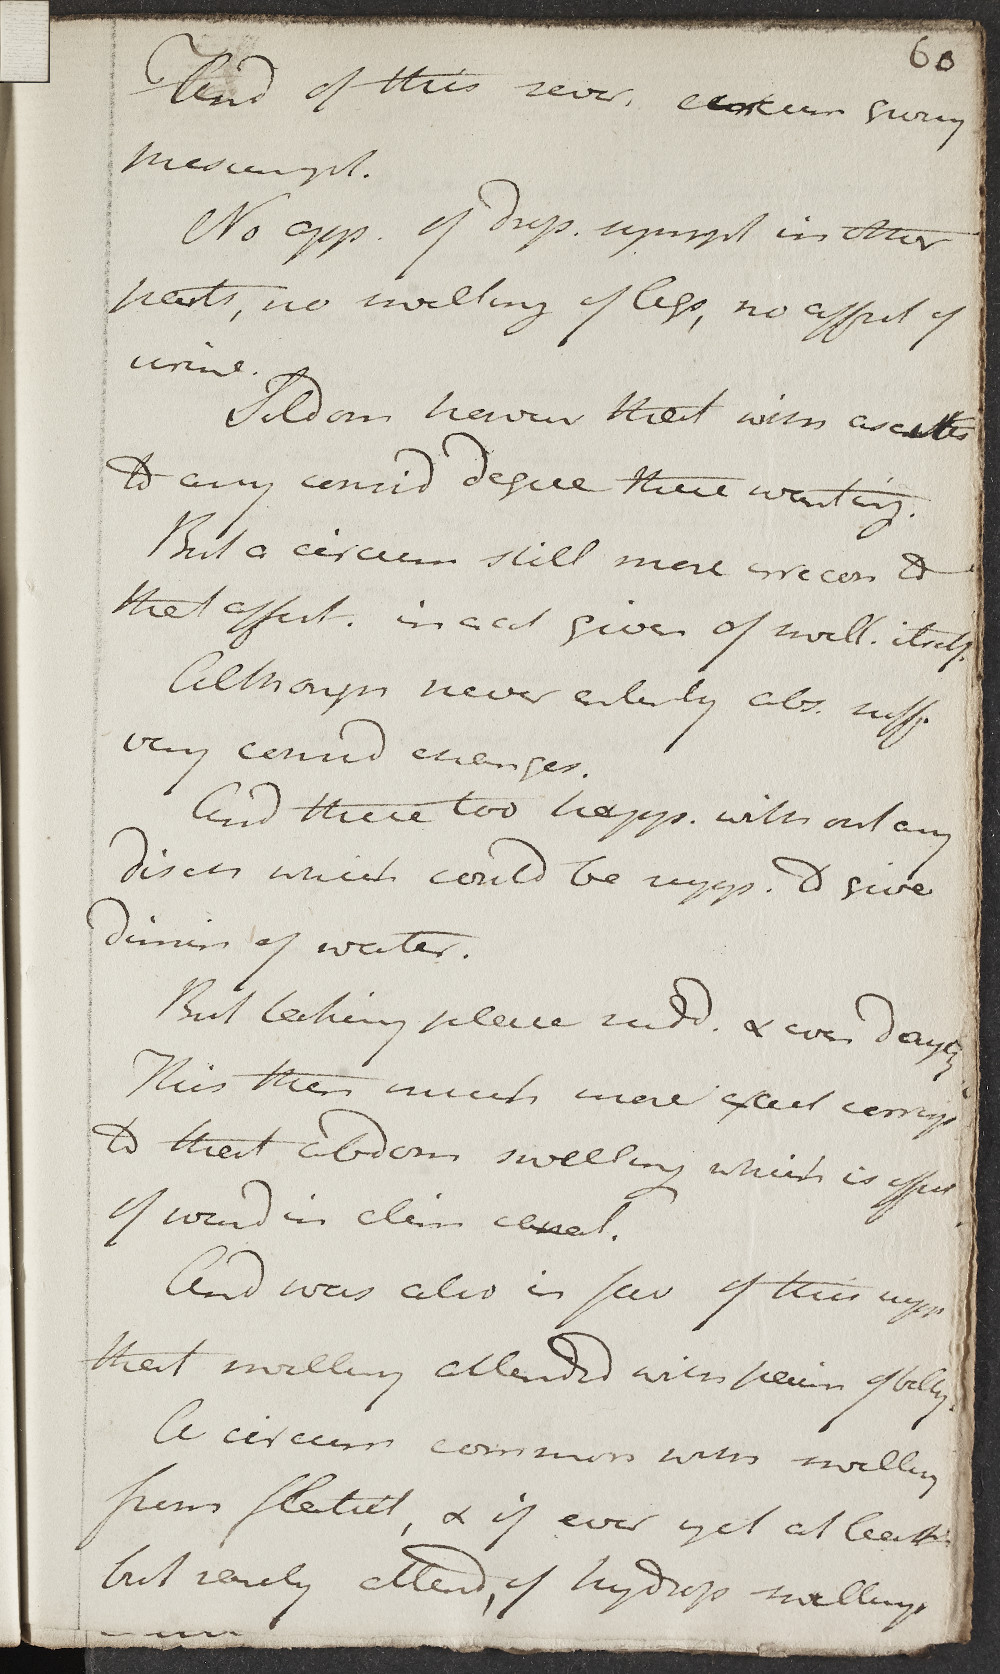 60
And of this sever. circum giving
presumpt.
No app. of drop. sympt in other
parts, no swelling of legs, no affect of
urine.
Seldom however that with ascites
to any consid degree these wanting.
But a circum still more irrecon to
that affect. in act given of swell. itself.
Although never entirely abs. suff
very consid changes.
And these too happ. without any
disch which could be supp. to give
dimin of water.
But taking place sudd. & even dayly
This then much more exact corresp
to that abdom swelling which is effect
of wind in alim canal.
And was also in fav of this supp
that swelling attended with pain of belly.
A circum common with swelling
from flatul, & if ever yet at least
but rarely attend, of hydrop swellings